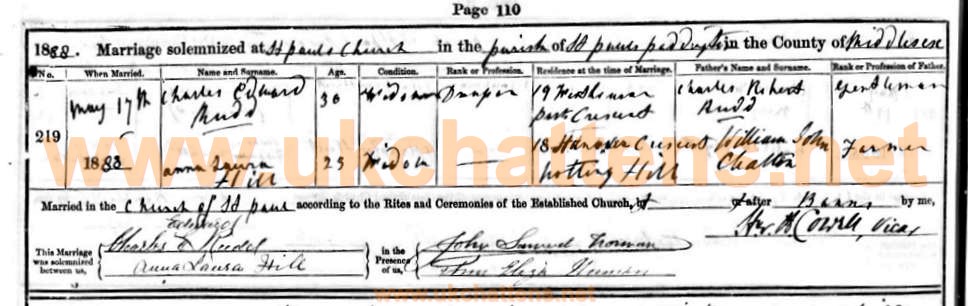 Page 110
1888. Marriage solemnized at St Pauls Church in the parish of St Pauls paddington in the County of Middlesex
No. When Married. Name and Surname. Age. Condition. Rank or Profession. Residence at the time of Marriage. Father's Name and Surname. Rank or Profession of Father.
219
May 17th 1888 Charles Edward Rudd 30 Widower Draper 19 Park Crescent Charles Robert Rudd Gentleman
Anna Laura Hill 25 Widow — 18 Hanover Crescent Notting Hill William John Chatten Farmer
Married in the Church of St Paul according to the Rites and Ceremonies of the Established Church, by or after Banns by me,
Cowell, Vicar
This Marriage was solemnized between us,
Edward
Charles E Rudd
Anna Laura Hill
in the Presence of us,
John Samuel Norman
www.ukchattens.net
www.ukchattens.net